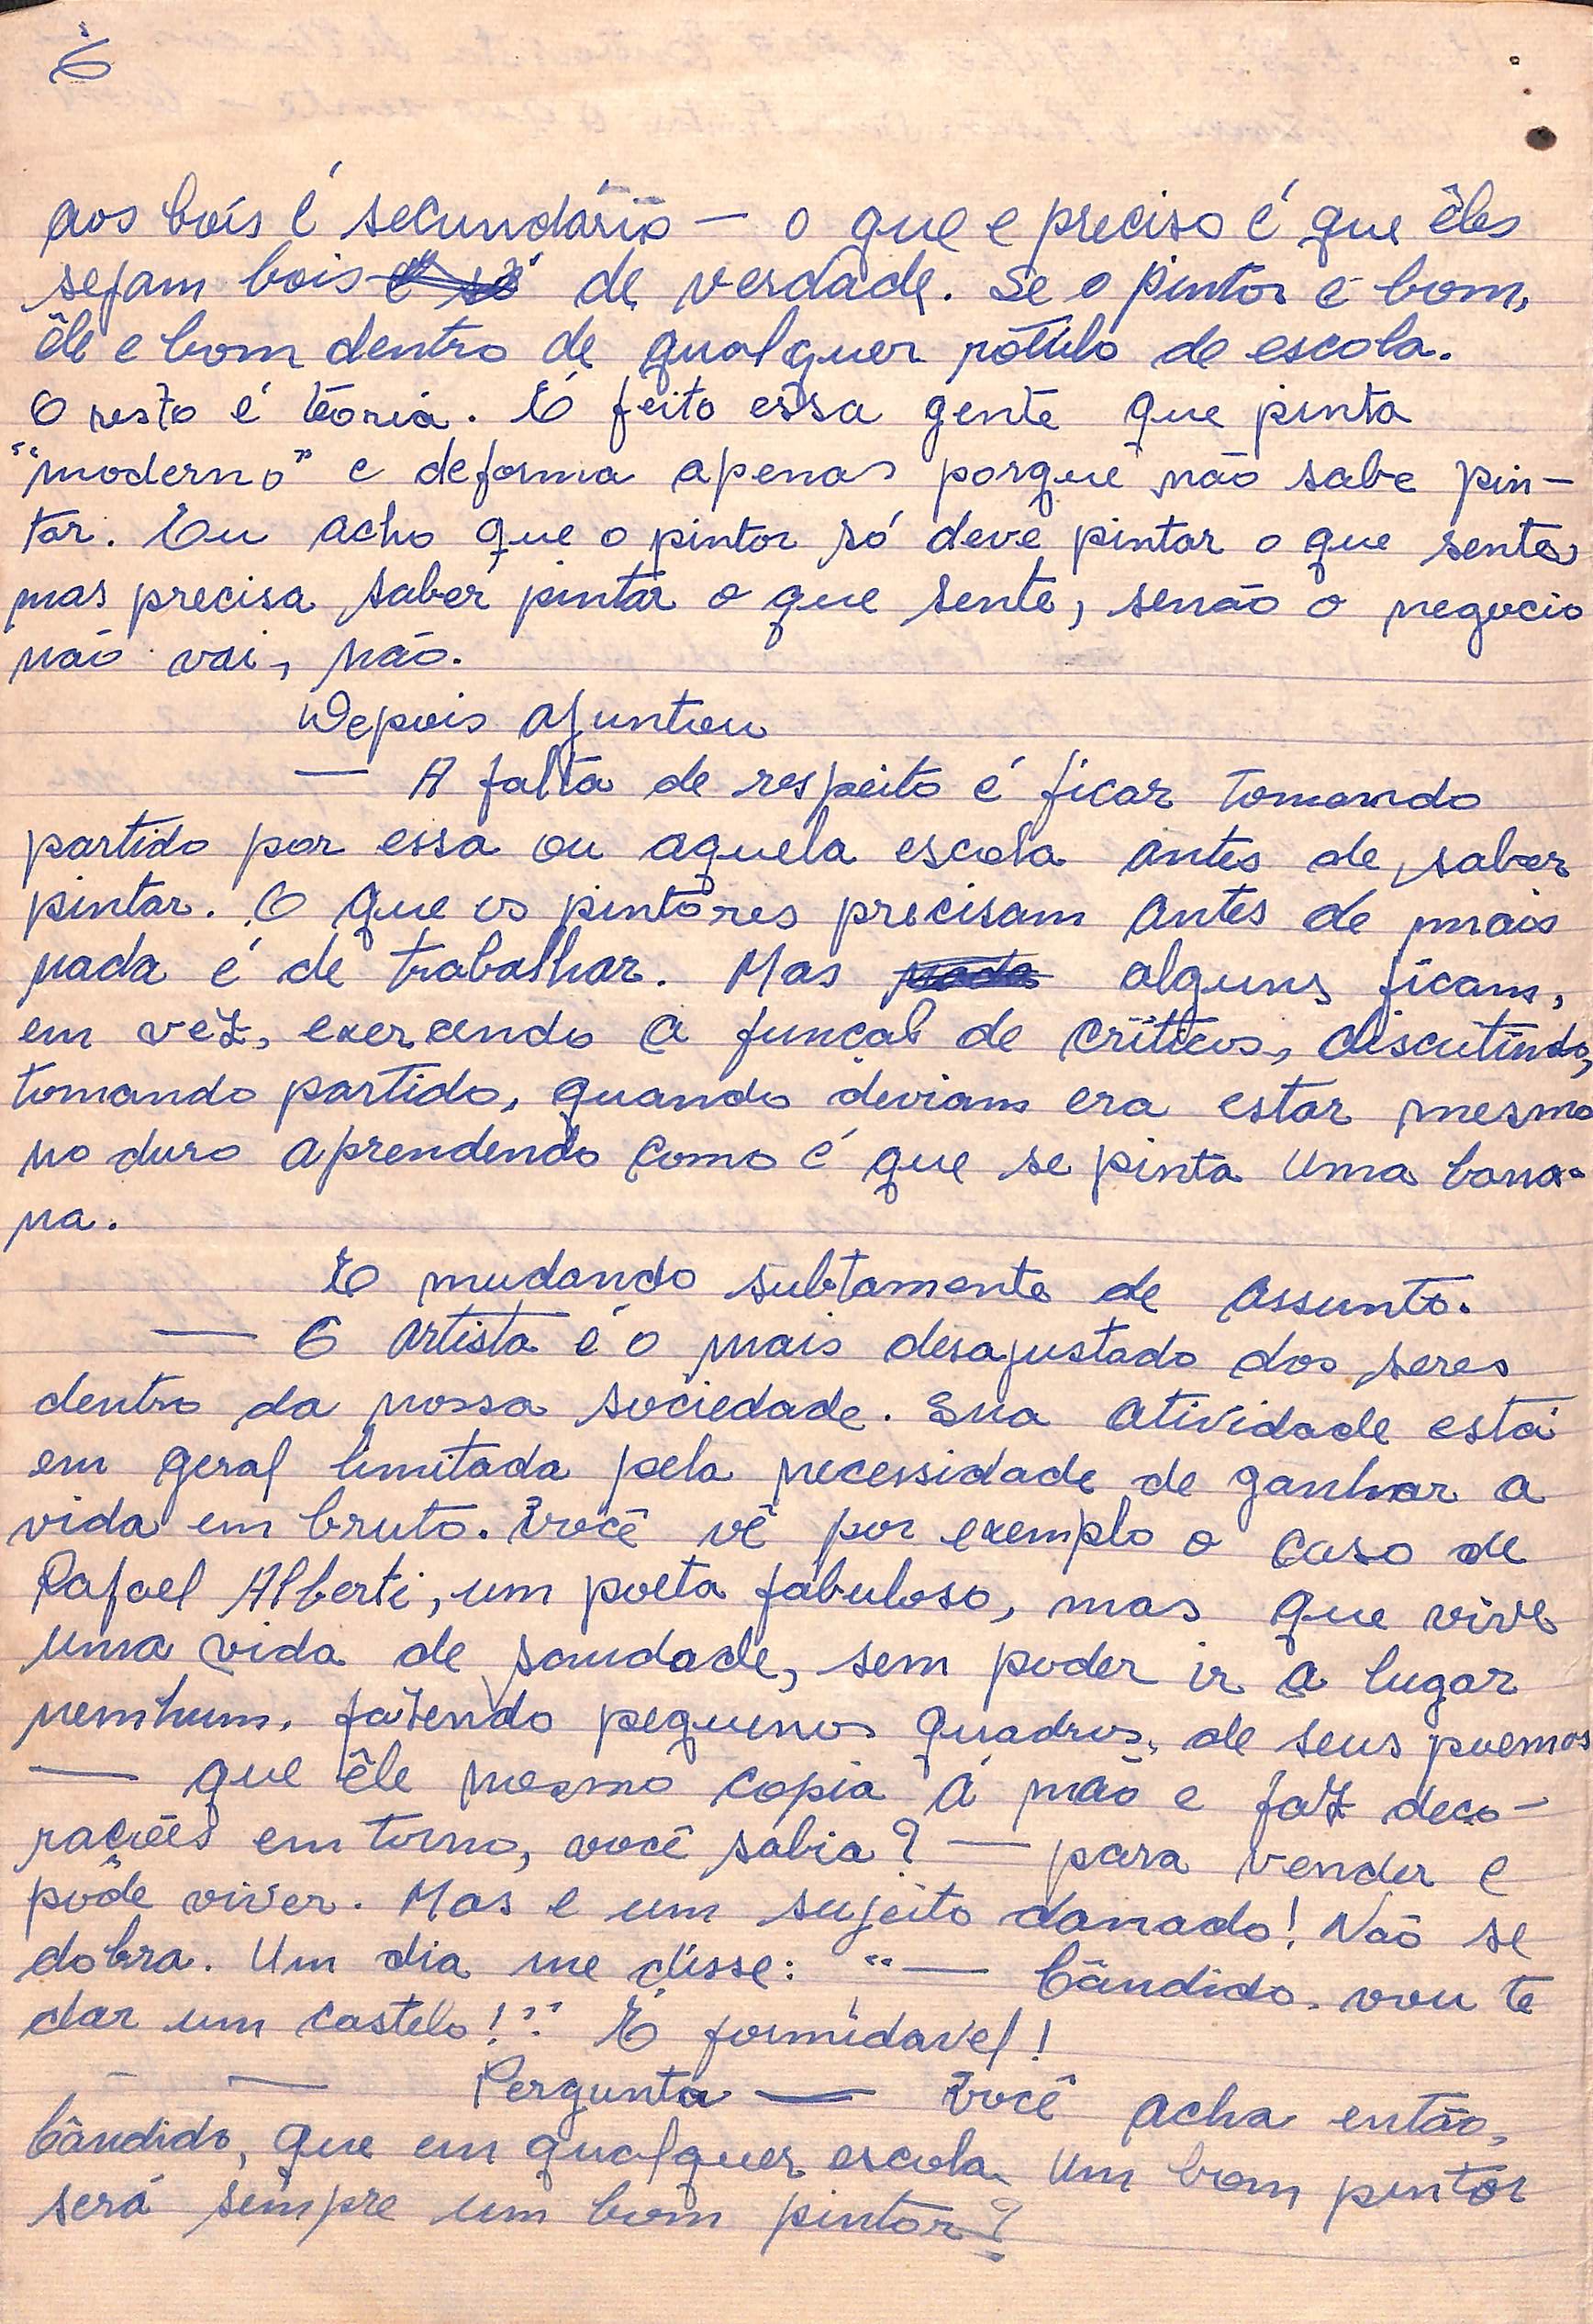 6
aos bois é secundário — o que e preciso é que êles
sejam bois de verdade. Se o pintor é bom,
êle e bom dentro de qualquer rótulo de escola.
O resto é teoria. É feito essa gente que pinta
"moderno" e deforma apenas porque não sabe pin-
tar. Eu acho que o pintor só deve pintar o que sente
mas precisa saber pintar o que sente, senão o negocio
não vai, não.
Depois ajuntou
— A falta de respeito é ficar tomando
partido por essa ou aquela escola antes de saber
pintar. O que os pintores precisam antes de mais
nada é de trabalhar. Mas alguns ficam,
em vez, exercendo a funçaõ de críticos, discutindo,
tomando partido, quando deviam era estar mesmo
no duro aprendendo como é que se pinta uma bana-
na.
E mudando subtamente de assunto.
— O artista é o mais desajustado dos seres
dentro da nossa sociedade. Sua atividade está
em geral limitada pela necessidade de ganhar a
vida em bruto. Você vê por exemplo o caso de
Rafael Alberti, um poeta fabuloso, mas que vive
uma vida de saudade, sem poder ir a lugar
nenhum, fazendo pequenos quadros, de seus poemas
— que êle mesmo copia á mão e faz deco-
rações em torno, você sabia? — para vender e
pode viver. Mas e um sujeito danado! Não se
dobra. Um dia me disse: "— Cândido, vou te
dar um castelo!". É formidavel!
— Pergunta — Você acha então,
Cândido, que em qualquer escola um bom pintor
será sempre um bom pintor?